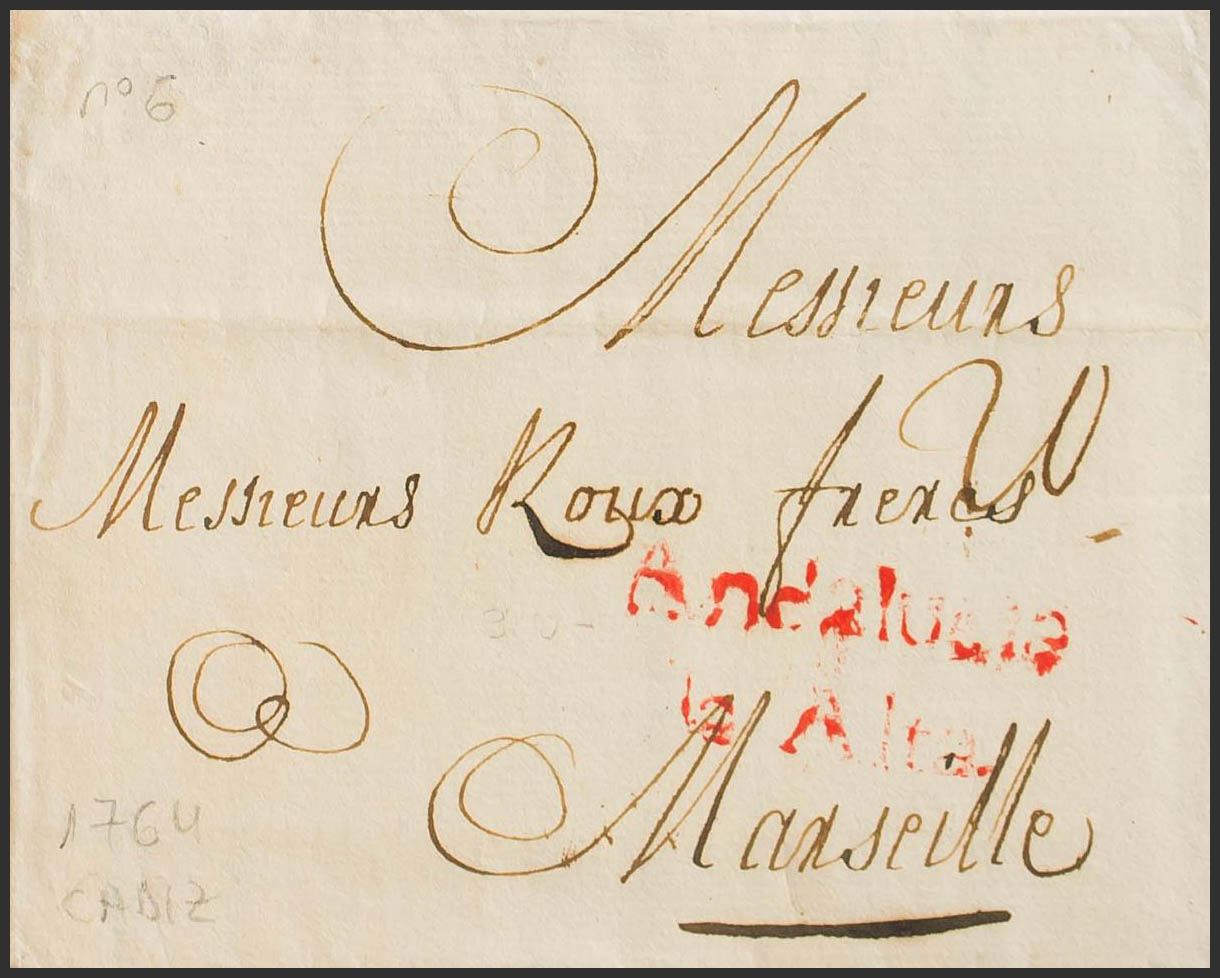 nº 6
Messieurs
Messieurs Roux freres
Andalucia
la Alta.
Marseille
1764
CADIZ